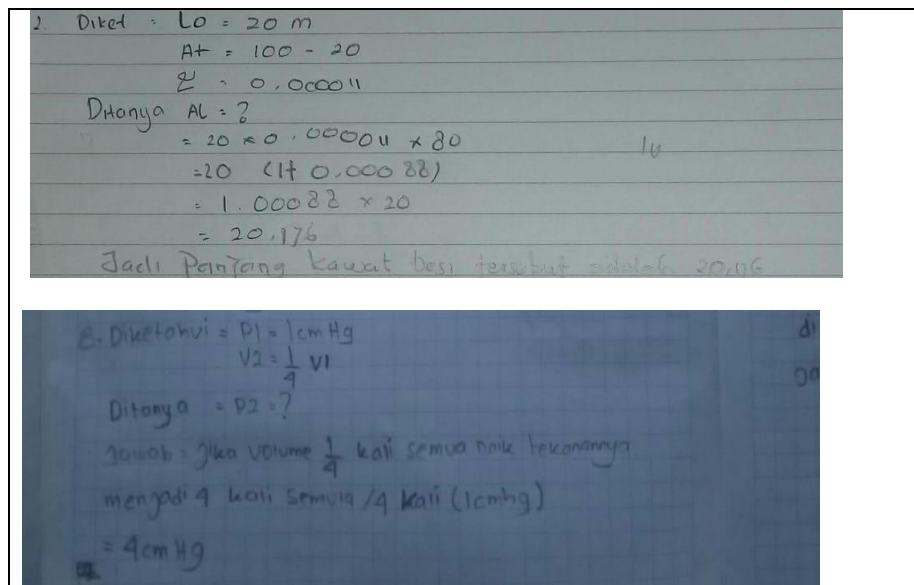 2. Diket : Lo = 20 m
At = 100 - 20
= 0.000011
Ditanya AL = ?
= 20 x 0.000011 x 80
=20 (1+ 0.00088)
= 1.00088 x 20
= 20.176
Jadi Panjang kawat besi tersebut adalah
8. Diketahui = P1 = 1cm Hg
V2 = 1/4 V1
Ditanya = P2 = ?
Jawab = Jika volume 1/4 kali semua naik tekanannya
menjadi 4 kali semula / 4 kali (1cmhg)
= 4cm Hg
di